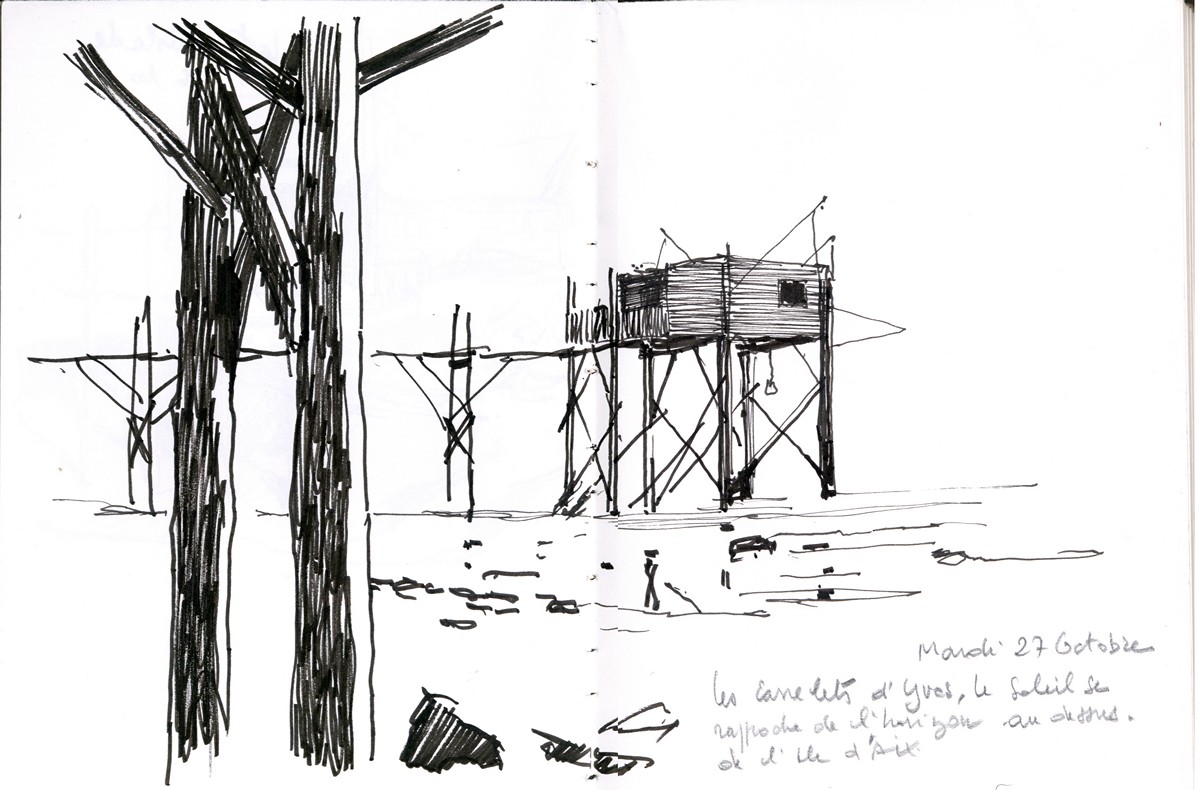 Mardi 27 Octobre
les carrelets d'Yves, le soleil se
rapproche de l'horizon au dessus.
de l'ile d'Aix